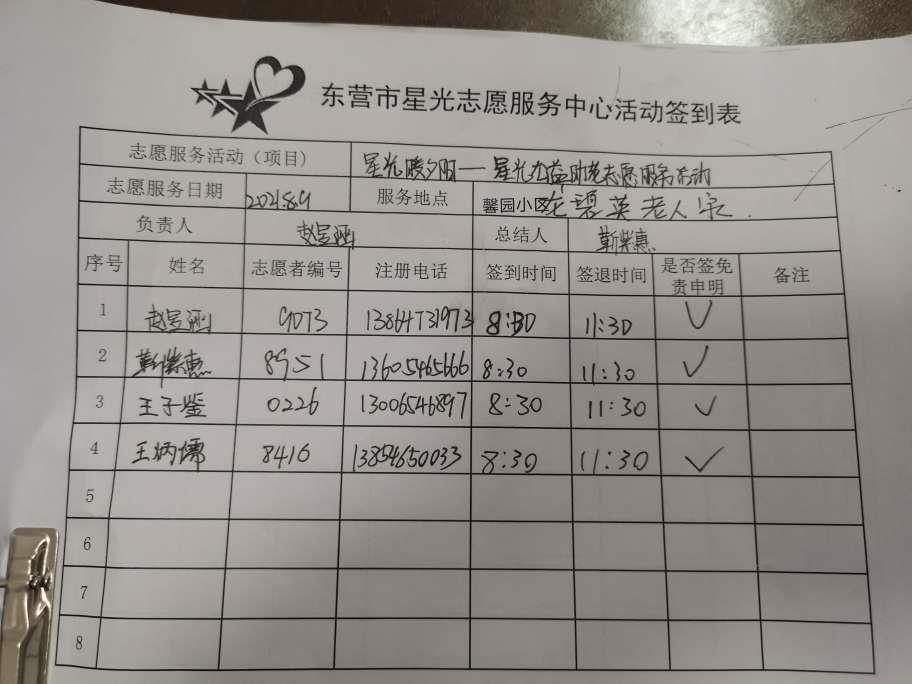 东营市星光志愿服务中心活动签到表
志愿服务活动（项目） 星光暖夕阳——星光公益助老志愿服务活动
志愿服务日期 2021.8.9 服务地点 馨园小区 碧英老人家
负责人 赵昱涵 总结人 靳紫惠
序号 姓名 志愿者编号 注册电话 签到时间 签退时间 是否签免责申明 备注
1 赵昱涵 9073 13864731973 8:30 11:30 ✓
2 靳紫惠 8951 13605465666 8:30 11:30 ✓
3 王子鉴 0226 13006546897 8:30 11:30 ✓
4 王炳儒 8416 13854650033 8:30 11:30 ✓
5
6
7
8